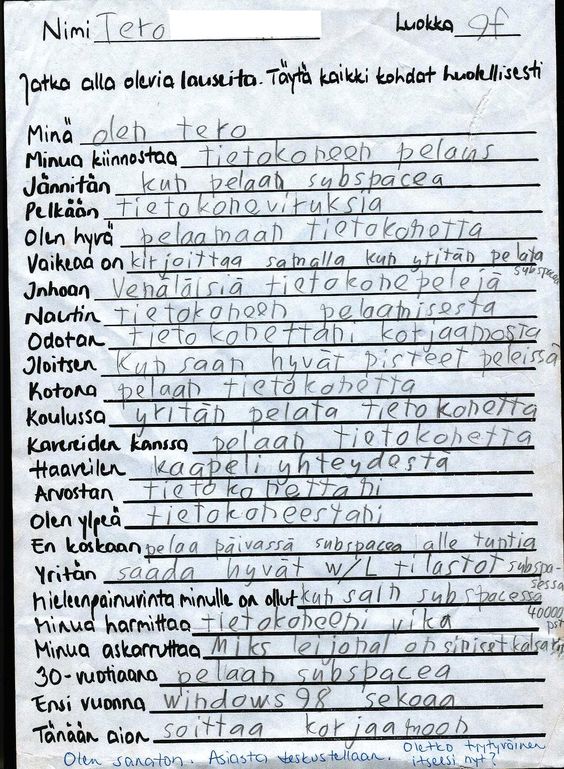 Nimi Tero Luokka 9f
Jatka alla olevia lauseita. Täytä kaikki kohdat huolellisesti
Minä olen tero
Minua kiinnostaa tietokoneen pelaus
Jännitän kun pelaan subspacea
Pelkään tietokoneviruksia
Olen hyvä pelaamaan tietokonetta
Vaikeaa on kirjoittaa samalla kun yritän pelata
subspacea
Inhoan Venäläisiä tietokonepelejä
Nautin tietokoneen pelaamisesta
Odotan tietokonettani korjaamosta
Iloitsen Kun saan hyvät pisteet peleissä
Kotona pelaan tietokonetta
Koulussa yritän pelata tietokonetta
Kavereiden kanssa pelaan tietokonetta
Haaveilen kaapeliyhteydestä
Arvostan tietokonettani
Olen ylpeä tietokoneestani
En koskaan pelaa päivässä subspacea alle tuntia
Yritän saada hyvät w/L tilastot subspa-
sessa
Mieleenpainuvinta minulle on ollut kun sain subspacessa
40000
pst
Minua harmittaa tietokoneeni vika
Minua askarruttaa Miks leijonal on siniset kalsarit
30-vuotiaana pelaan subspacea
Ensi vuonna windows 98 sekoaa
Tänään aion soittaa korjaamoon
Olen sanaton. Asiasta keskustellaan. Oletko tyytyväinen
itseesi nyt?